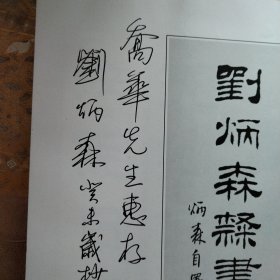 劉炳森隸書
炳森自
喬華先生惠存
劉炳森癸未歲杪